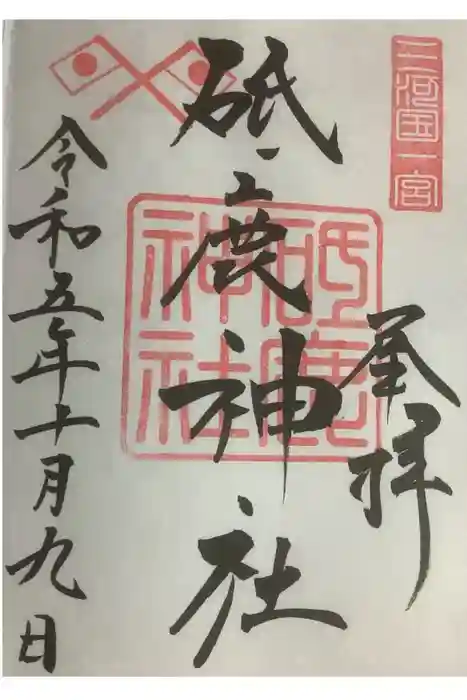 三河国一宮
奉拝
砥鹿神社
砥鹿神社
令和五年十月九日